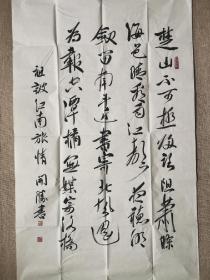 楚山不可極歸路但蕭條
海色晴看雨江聲夜聽潮
劍留南斗近書寄北風遙
為報空潭橘無媒寄洛橋
祖詠江南旅情 開勝書